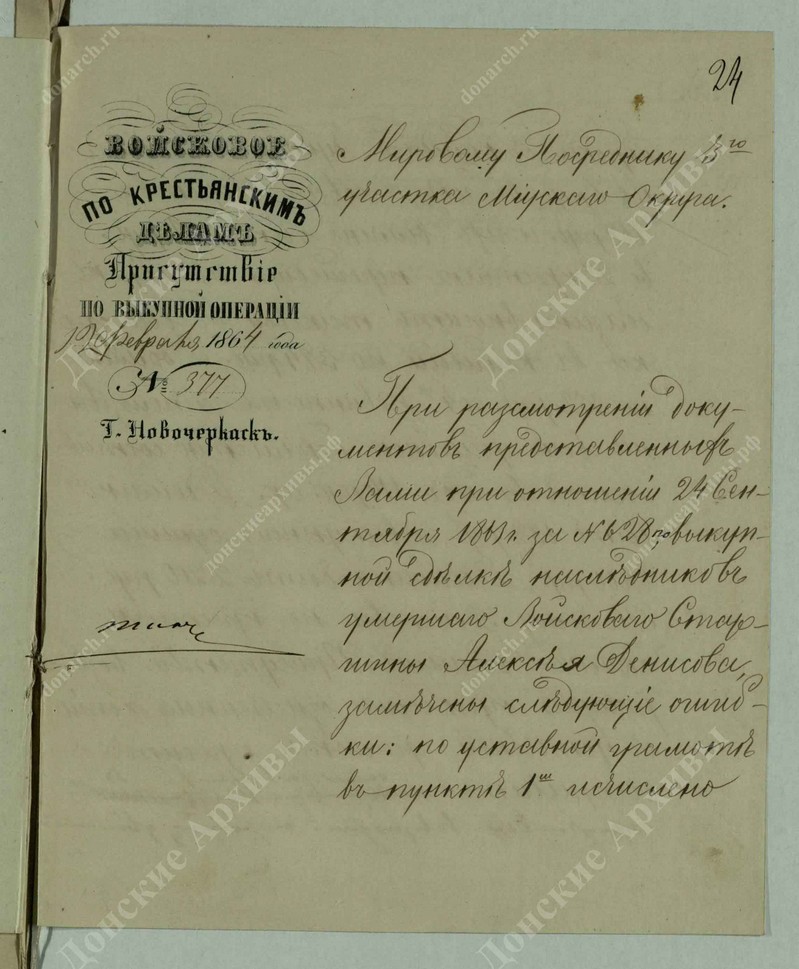 24
ВОЙСКОВОЕ
ПО КРЕСТЬЯНСКИМЪ
ДѢЛАМЪ
Присутствіе
ПО ВЫКУПНОЙ ОПЕРАЦІИ
12 февраля 1864 года
№ 377
Г. Новочеркаскъ.
Мировому Посреднику 3го
участка Міускаго Округа.
При разсмотреніи доку-
ментовъ представленныхъ
Вами при отношеніи 24 Сен-
тября 1863 г. за № 628 по выкуп-
ной сдѣлкѣ наслѣдниковъ
умершаго Войсковаго Стар-
шины Алексѣя Денисова,
замѣчены слѣдующіе ошиб-
ки: по уставной грамотѣ
въ пунктѣ 1м исчислено
Донские Архивы
donarch.ru
донскиеархивы.рф